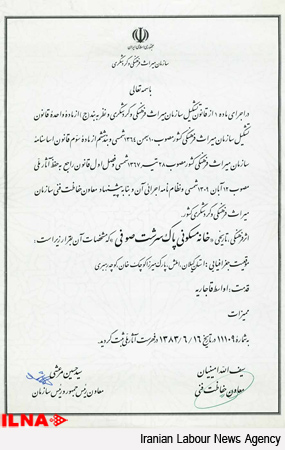 جمهوری اسلامی ایران
سازمان میراث فرهنگی و گردشگری
باسمه تعالی
در اجرای ماده ۱ از قانون تشکیل سازمان میراث فرهنگی و گردشگری و نظر به بند ج از ماده واحدهٔ قانون
تشکیل سازمان میراث فرهنگی کشور مصوب ۱۰ بهمن ۱۳۶۴ شمسی و بند ششم از مادهٔ سوم قانون اساسنامه
سازمان میراث فرهنگی کشور مصوب ۲۸ تیر ۱۳۶۷ شمسی و فصل اول قانون راجع به حفظ آثار ملی
مصوب ۱۲ آبان ۱۳۰۹ شمسی و نظام نامه اجرائی آن و بنا به پیشنهاد معاون حفاظت فنی سازمان
میراث فرهنگی و گردشگری کشور.
اثر فرهنگی، تاریخی «خانه مسکونی پاک سرشت صوفی» که مشخصات آن به قرار زیر است:
موقعیت جغرافیایی: استان گیلان، املش، پارک میرزا کوچک خان، کوچه رهبری
قدمت: اواسط قاجاریه
ممیزات
به شماره ۱۱۱۰۹ در تاریخ ۱۳۸۳/۶/۱۶ در فهرست آثار ملی ثبت گردید.
سیف الله امینیان
معاون حفاظت فنی
سید حسین مرعشی
معاون رئیس جمهور و رئیس سازمان
ILNA
Iranian Labour News Agency